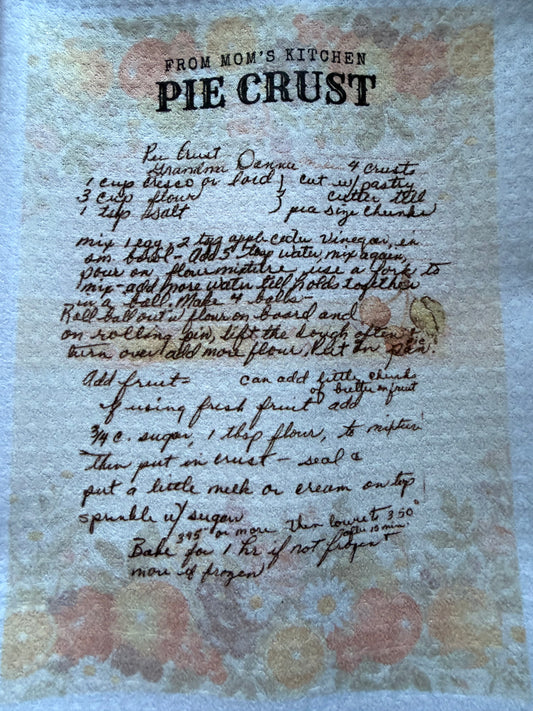 FROM MOM'S KITCHEN
PIE CRUST
Pie Crust
Grandma 4 crusts
1 cup Cresco or lard } cut w/ pastry
3 cup flour } cutter till
1 tsp salt } pea size chunks
mix 1 egg, 2 tsp apple cider vinegar, in
sm. bowl - Add 5 tsp water, mix again,
pour on flour mixture, use a fork to
mix - add more water till holds together
in a ball. Make 4 balls -
Roll ball out w/ flour on board and
on rolling pin, lift the dough often &
turn over add more flour. Put in pie pan.
Add fruit = can add little chunks
of butter on fruit
If using fresh fruit add
3/4 c. sugar, 1 tbsp flour, to mixture
Then put in crust - seal &
put a little milk or cream on top
sprinkle w/ sugar
395° or more then lower to 350°
after 15 min.
Bake for 1 hr if not frozen +
more if frozen